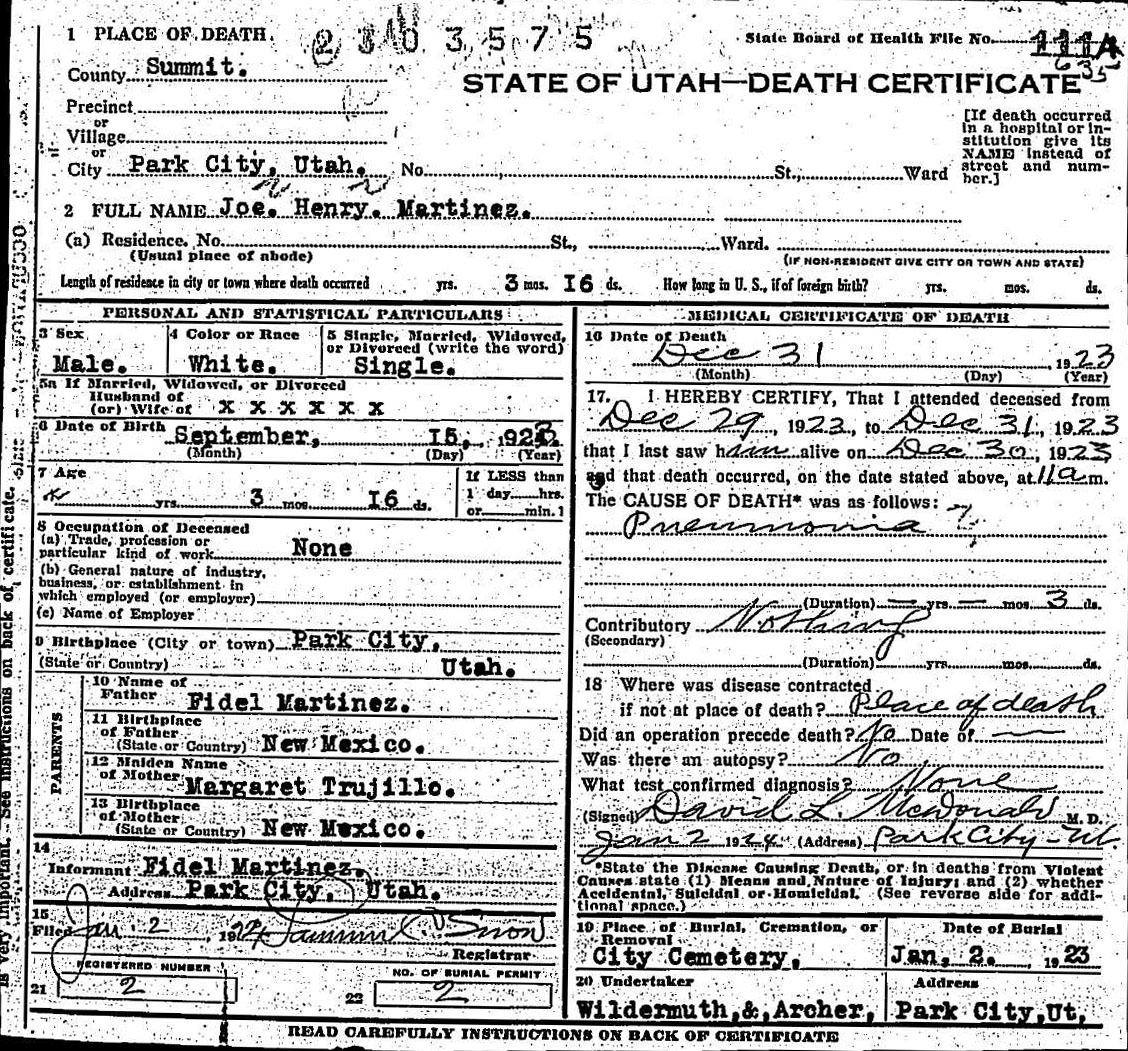 1 PLACE OF DEATH. 2303575 State Board of Health File No. 111A
635
County Summit.
STATE OF UTAH—DEATH CERTIFICATE
Precinct
or
Village
or
City Park City, Utah. No. St., Ward
[If death occurred
in a hospital or in-
stitution give its
NAME instead of
street and num-
ber.]
2 FULL NAME Joe. Henry. Martinez.
(a) Residence. No. St., Ward.
(Usual place of abode) (IF NON-RESIDENT GIVE CITY OR TOWN AND STATE)
Length of residence in city or town where death occurred yrs. 3 mos. I6 ds. How long in U. S., if of foreign birth? yrs. mos. ds.
PERSONAL AND STATISTICAL PARTICULARS
3 Sex
Male.
4 Color or Race
White.
5 Single, Married, Widowed,
or Divorced (write the word)
Single.
5a If Married, Widowed, or Divorced
Husband of
(or) Wife of X X X X X X
6 Date of Birth
September, I5, 1923
(Month) (Day) (Year)
7 Age
yrs. 3 mos. I6 ds.
If LESS than
1 day hrs.
or min.]
8 Occupation of Deceased
(a) Trade, profession or
particular kind of work None
(b) General nature of industry,
business, or establishment in
which employed (or employer)
(c) Name of Employer
9 Birthplace (City or town) Park City,
(State or Country) Utah.
PARENTS
10 Name of
Father Fidel Martinez.
11 Birthplace
of Father
(State or Country) New Mexico.
12 Maiden Name
of Mother Margaret Trujillo.
13 Birthplace
of Mother
(State or Country) New Mexico.
14
Informant Fidel Martinez.
Address Park City, Utah.
15
Filed Jan 2, 1924
Registrar
REGISTERED NUMBER
21 2
NO. OF BURIAL PERMIT
22 2
MEDICAL CERTIFICATE OF DEATH
16 Date of Death
Dec 31 1923
(Month) (Day) (Year)
17. I HEREBY CERTIFY, That I attended deceased from
Dec 29, 1923, to Dec 31, 1923
that I last saw him alive on Dec 30, 1923,
and that death occurred, on the date stated above, at 11 a m.
The CAUSE OF DEATH* was as follows:
Pneumonia
(Duration) — yrs. — mos. 3 ds.
Contributory Nothing
(Secondary)
(Duration) yrs. mos. ds.
18 Where was disease contracted
if not at place of death? Place of death
Did an operation precede death? No Date of —
Was there an autopsy? No
What test confirmed diagnosis? None
(Signed) David L. McDonald M. D.
Jan 2 1924 (Address) Park City - Ut.
*State the Disease Causing Death, or in deaths from Violent
Causes state (1) Means and Nature of Injury; and (2) whether
Accidental, Suicidal or Homicidal. (See reverse side for addi-
tional space.)
19 Place of Burial, Cremation, or
Removal
City Cemetery,
Date of Burial
Jan, 2. , 1923
20 Undertaker
Wildermuth,&,Archer,
Address
Park City,Ut,
READ CAREFULLY INSTRUCTIONS ON BACK OF CERTIFICATE
is very important. See instructions on back of certificate.